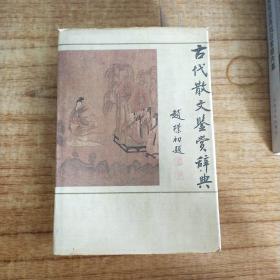 古代散文鉴赏辞典
赵朴初题